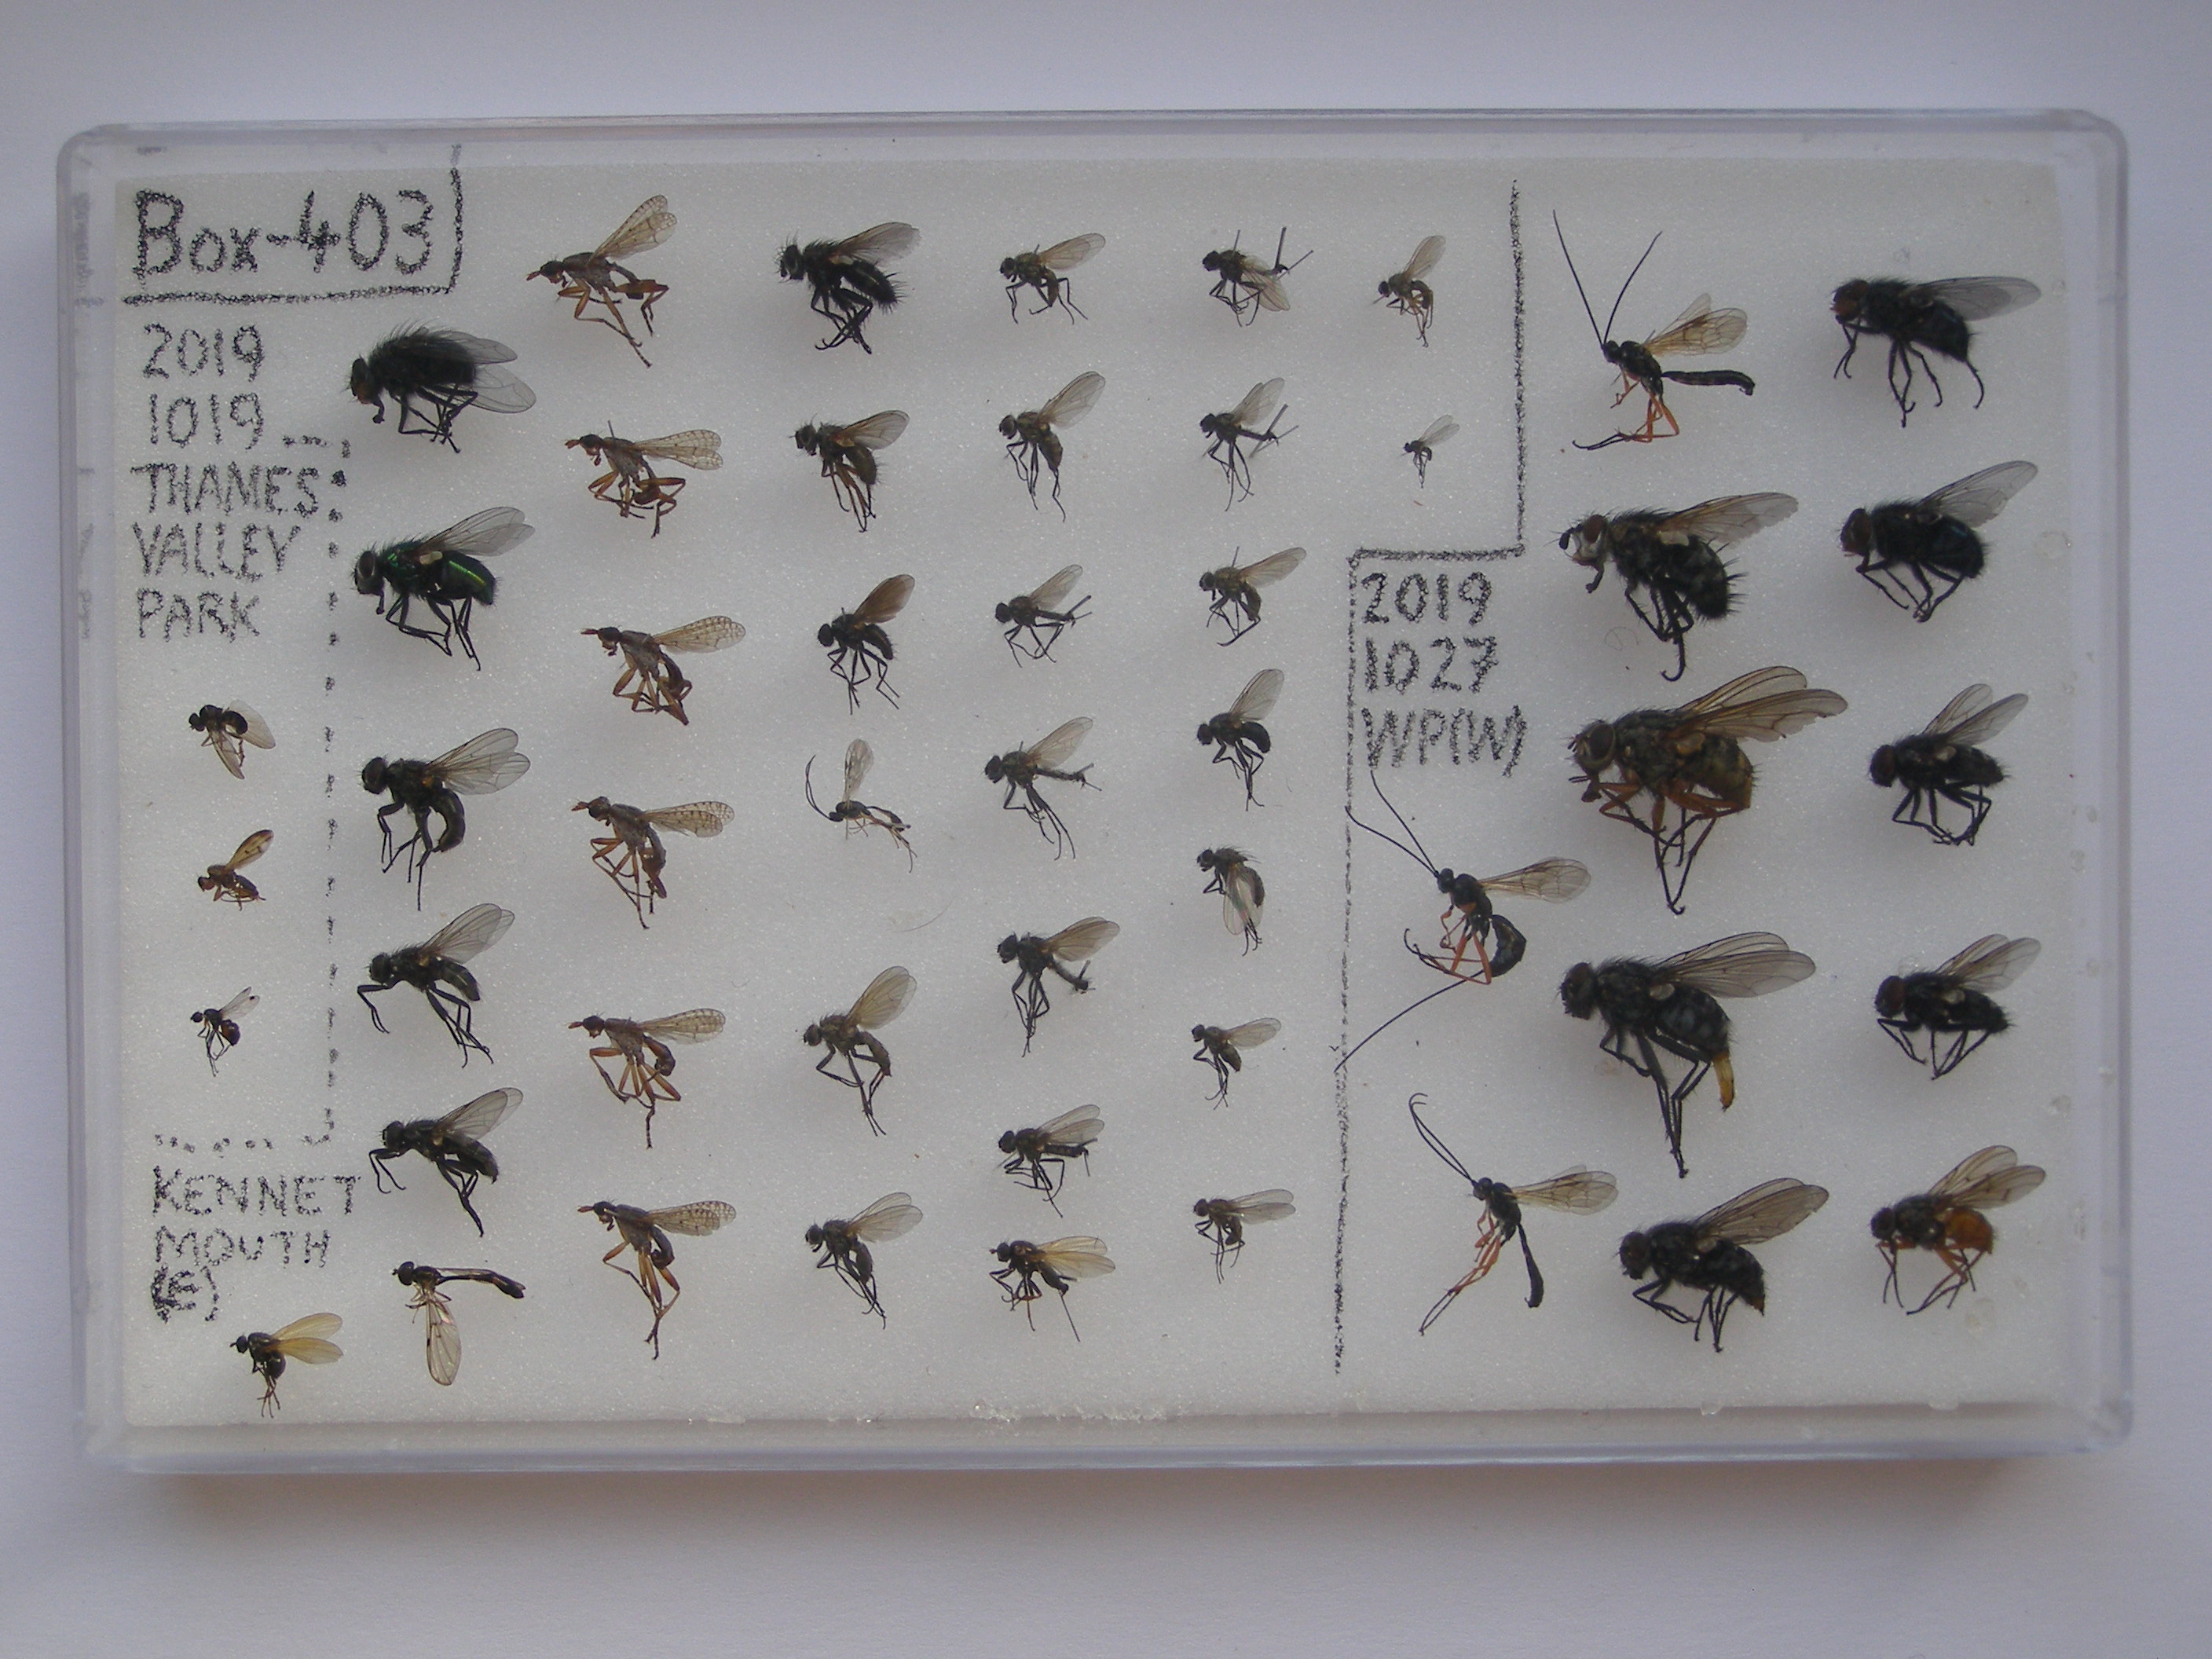 Box-403
2019
1019
THAMES
VALLEY
PARK
KENNET
MOUTH
(E)
2019
1027
WP(W)